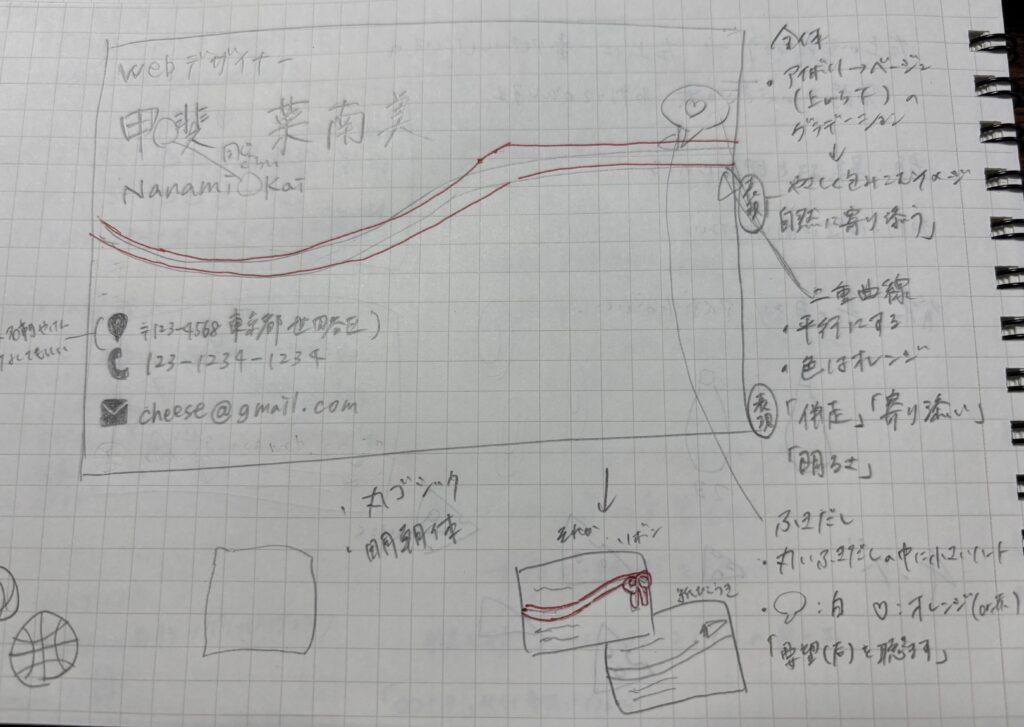 Webデザイナー
甲斐 菜南美
同じくらい
Nanami Kai
〒123-4568 東京都世田谷区
123-1234-1234
cheese@gmail.com
全体
・アイボリー→ベージュ
(上から下)の
グラデーション
やさしく包みこむイメージ
自然に寄り添う」
表現
二重曲線
・平行にする
・色はオレンジ
表現
「伴走」「寄り添い」
「明るさ」
ふきだし
・丸いふきだしの中に小さいハート
・ :白 ♡:オレンジ(or赤)
「要望(声)を聴きます」
・丸ゴシック
・明朝体
それか
リボン
紙ひこうき